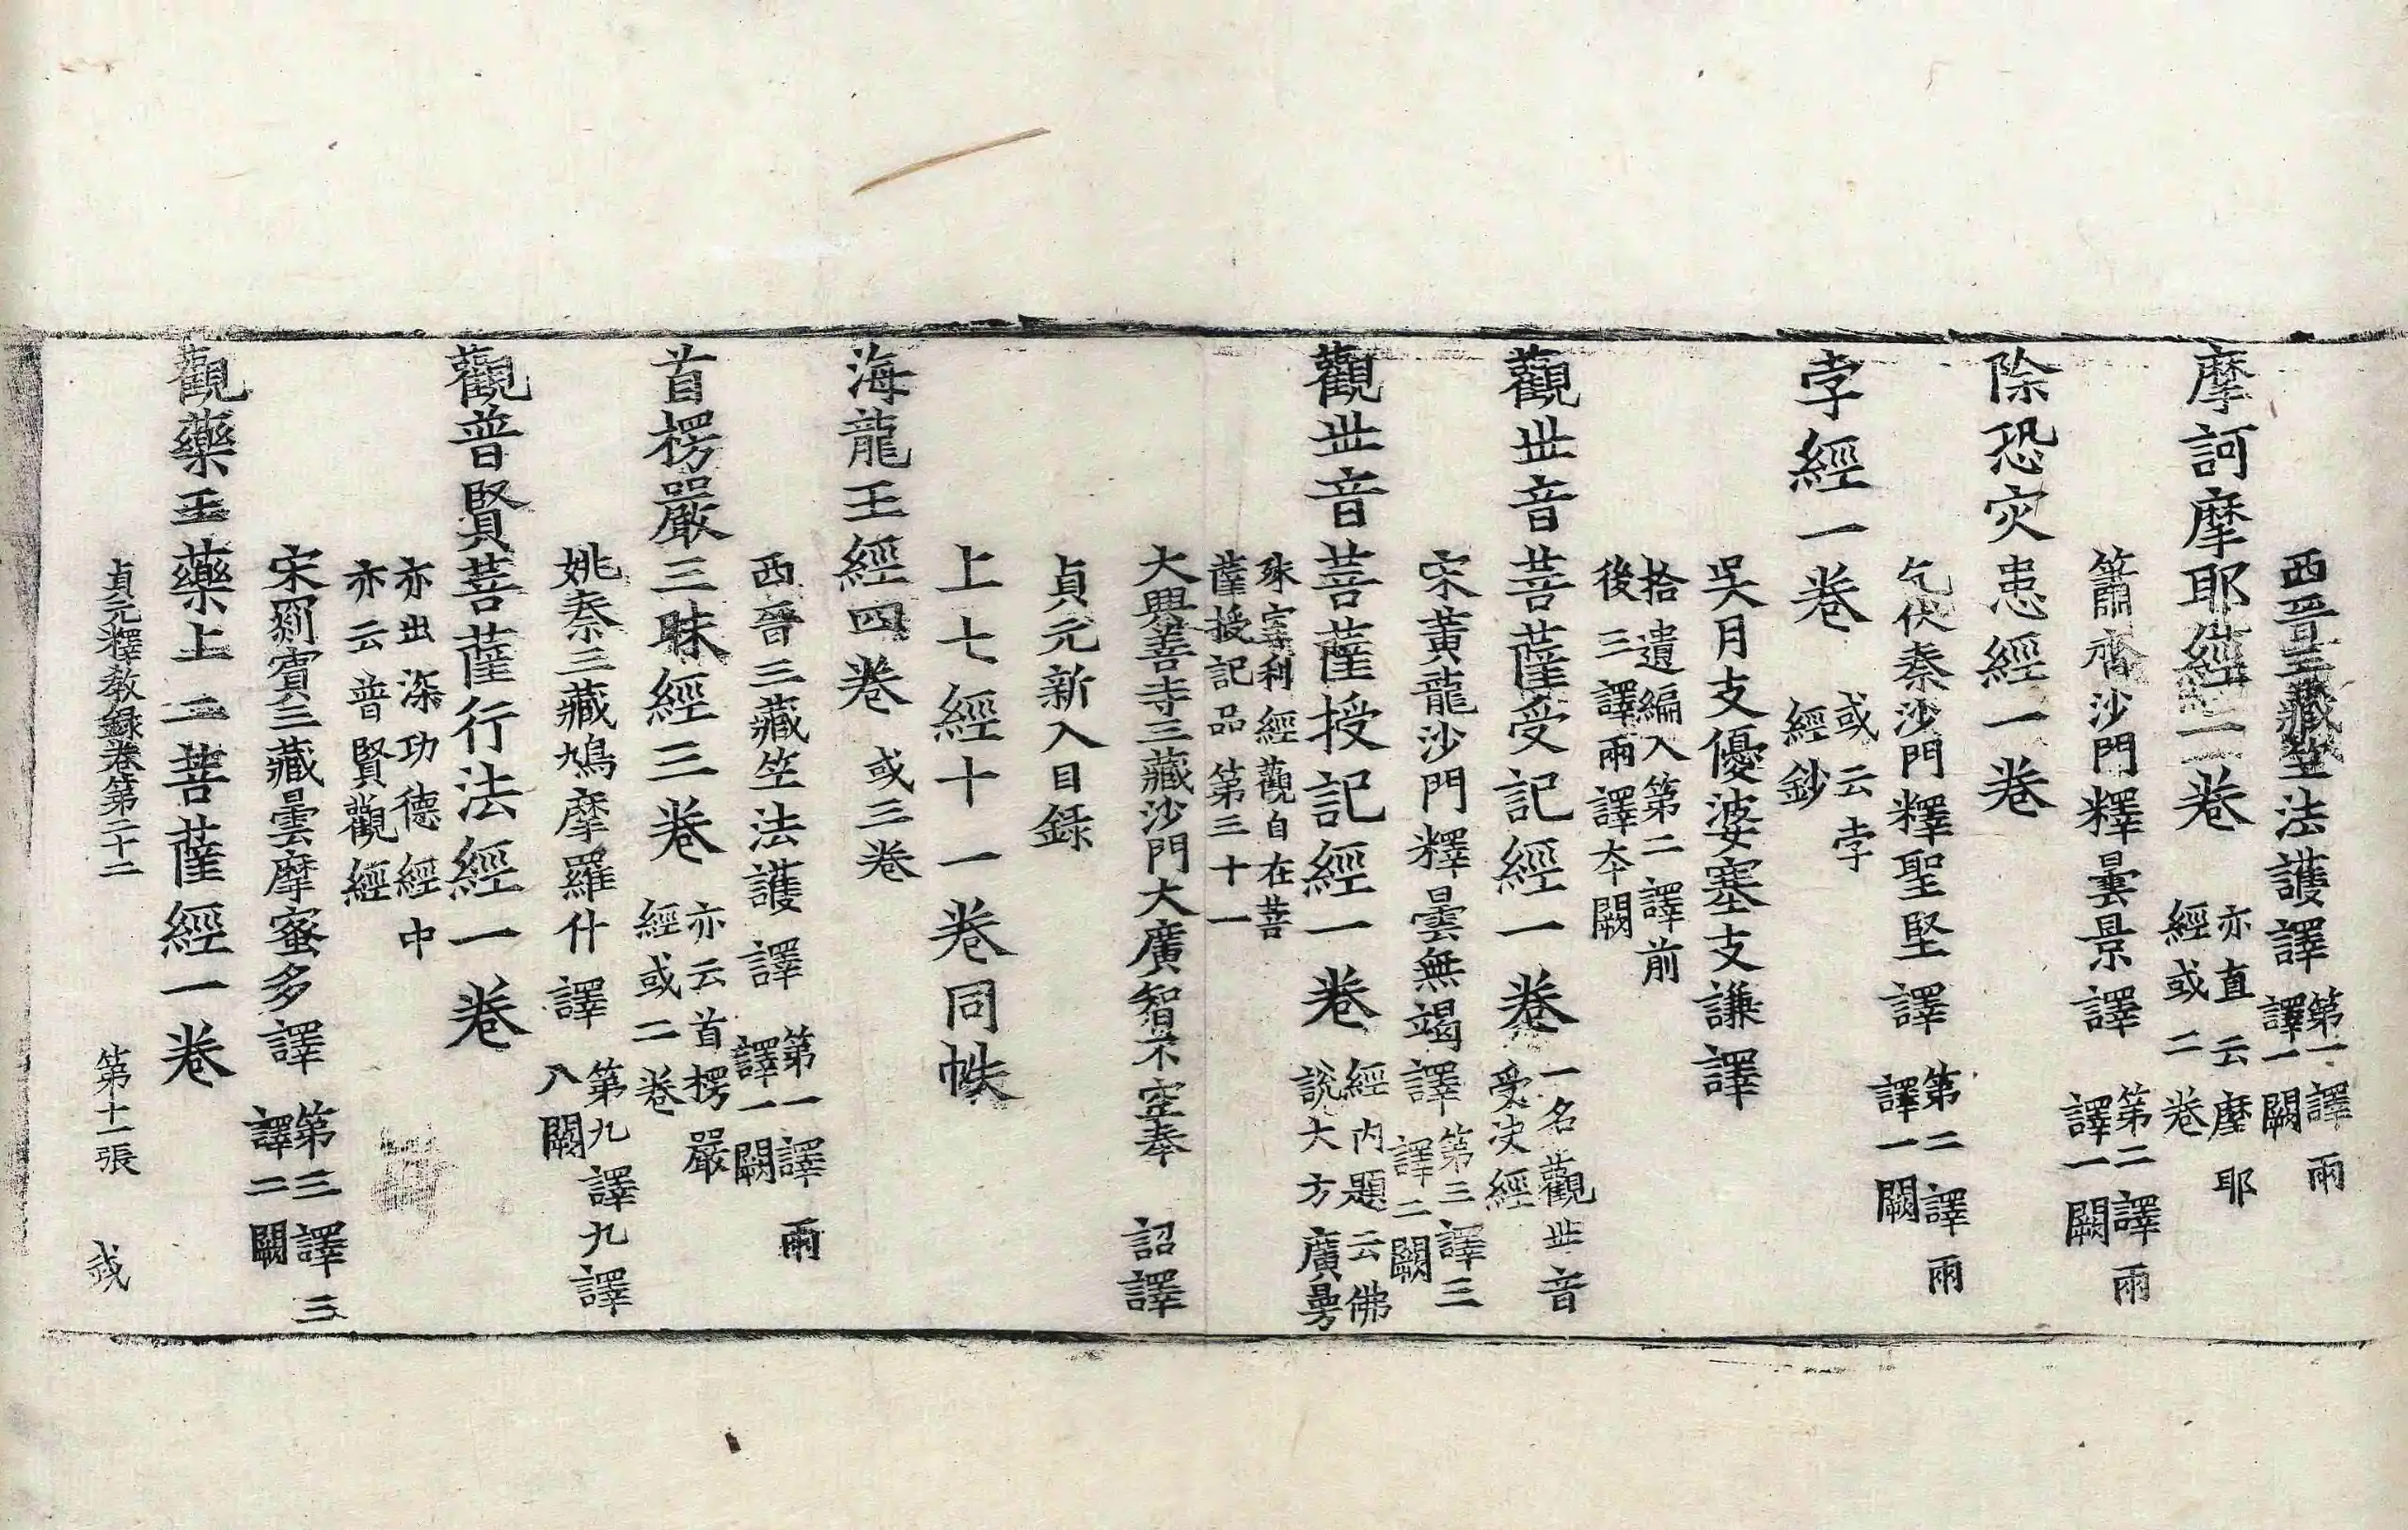 西晉三藏竺法護譯 第一譯兩
譯一闕
摩訶摩耶經一卷 亦直云摩耶
經或二卷
簫齊沙門釋曇景譯 第二譯兩
譯一闕
除恐灾患經一卷
乞伏秦沙門釋聖堅譯 第二譯兩
譯一闕
孛經一卷 或云孛
經鈔
吳月支優婆塞支謙譯
拾遺編入第二譯前
後三譯兩譯夲闕
觀世音菩薩受記經一卷 一名觀世音
受决經
宋黃龍沙門釋曇無竭譯 第三譯三
譯二闕
觀世音菩薩授記經一卷 經内題云佛
説大方廣曼
殊室利經觀自在菩
薩授記品第三十一
大興善寺三藏沙門大廣智不空奉 詔譯
貞元新入目録
上七經十一卷同帙
海龍王經四卷 或三卷
西晉三藏竺法護譯 第一譯兩
譯一闕
首楞嚴三昧經三卷 亦云首楞嚴
經或二卷
姚秦三藏鳩摩羅什譯 第九譯九譯
八闕
觀普賢菩薩行法經一卷
亦出深功德經中
亦云普賢觀經
宋罽賓三藏曇摩蜜多譯 第三譯三
譯二闕
觀藥王藥上二菩薩經一卷
貞元釋教録卷第二十二 第十一張